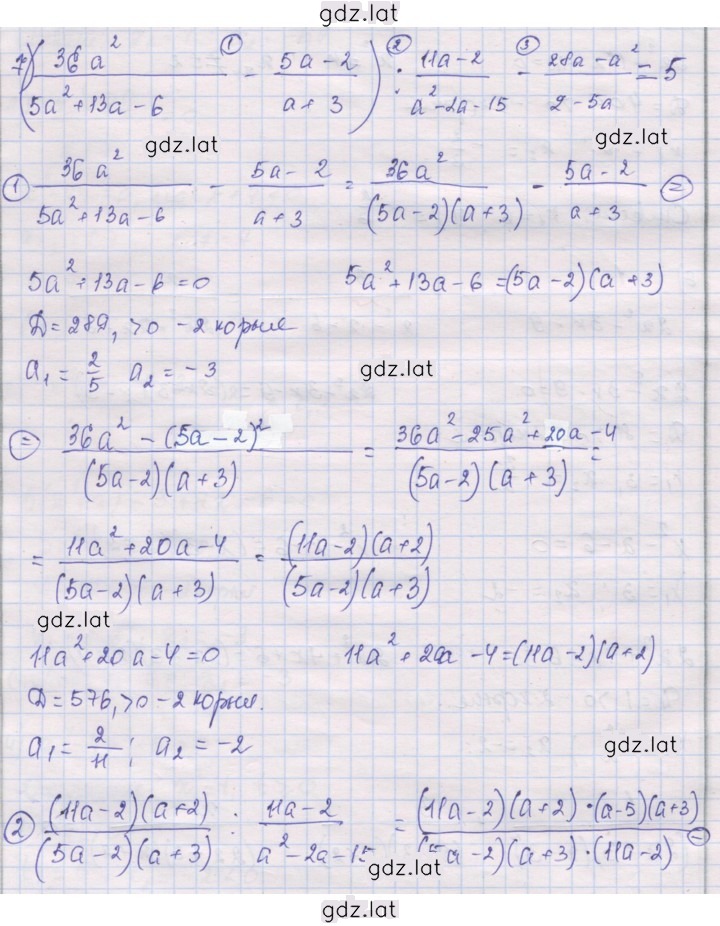 gdz.lat
7) (36a²/(5a²+13a-6) ① - (5a-2)/(a+3)) ② : (11a-2)/(a²-2a-15) ③ - (28a-a²)/(2-5a) = 5
gdz.lat
① 36a²/(5a²+13a-6) - (5a-2)/(a+3) = 36a²/((5a-2)(a+3)) - (5a-2)/(a+3) ⊜
5a²+13a-6=0 5a²+13a-6=(5a-2)(a+3)
Д=289, >0 - 2 корня
a₁ = 2/5 a₂ = -3
gdz.lat
⊜ (36a² - (5a-2)²)/((5a-2)(a+3)) = (36a²-25a²+20a-4)/((5a-2)(a+3)) =
= (11a²+20a-4)/((5a-2)(a+3)) = ((11a-2)(a+2))/((5a-2)(a+3))
gdz.lat
11a²+20a-4=0 11a²+20a-4=(11a-2)(a+2)
Д=576, >0 - 2 корня.
a₁ = 2/11; a₂ = -2
gdz.lat
② ((11a-2)(a+2))/((5a-2)(a+3)) : (11a-2)/(a²-2a-15) = ((11a-2)(a+2)·(a-5)(a+3))/((5a-2)(a+3)·(11a-2)) ⊜
gdz.lat
gdz.lat